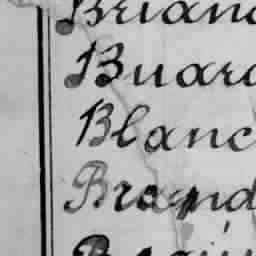 Brian
Buar
Blanc
Brand